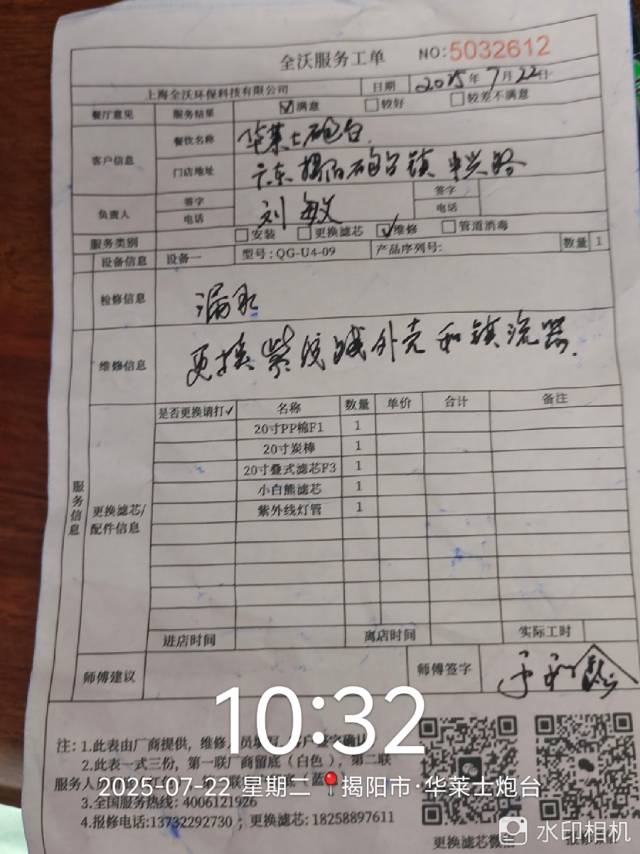 全沃服务工单 NO:5032612
上海全沃环保科技有限公司 日期 2025年7月22日
餐厅意见 服务结果 ☑满意 ☐较好 ☐较差不满意
客户信息 餐饮名称 华莱士炮台
门店地址 广东揭阳炮台镇中兴路
负责人 签字 刘敏 签字
电话 电话
服务类别 ☐安装 ☐更换滤芯 ☑维修 ☐管道消毒
设备信息 设备一 型号:QG-U4-09 产品序列号: 数量 1
检修信息 漏水
维修信息 更换紫线外壳和镇流器.
服务信息
更换滤芯/配件信息
是否更换请打✓ 名称 数量 单价 合计 备注
20寸PP棉F1 1
20寸炭棒 1
20寸叠式滤芯F3 1
小白熊滤芯 1
紫外线灯管 1
进店时间 离店时间 实际工时
师傅建议 师傅签字
10:32
注:1.此表由厂商提供，维修
2.此表一式三份，第一联厂商留底(白色)，第二联
服务人员
2025-07-22 星期二 揭阳市·华莱士炮台
3.全国服务热线: 4006121926
4.报修电话:13732292730 ; 更换滤芯: 18258897611
更换滤芯微信
水印相机